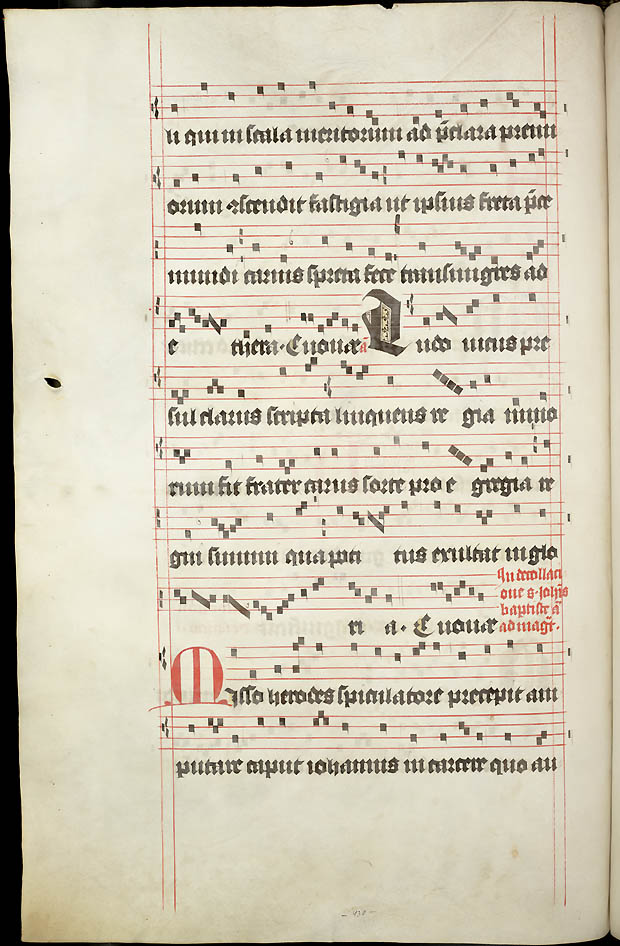 li qui in scala meritorum ad p̄clara premi
orum ascendit fastigia ut ipsius freta p̄ce
mundi carnis spreta fece transmigres ad
e thera. Euouae ā Ludo uicus pre
sul clarus scripta linquens re gia mino
rum fit frater carus sorte pro e gregia re
gni summi qua poti tus exultat in glo
ri a. Euouae
In decollaci
one s. ioh̄is
baptiste ā
ad mag̅t.
Misso herodes spiculatore precepit am
putare caput iohannis in carcere quo au